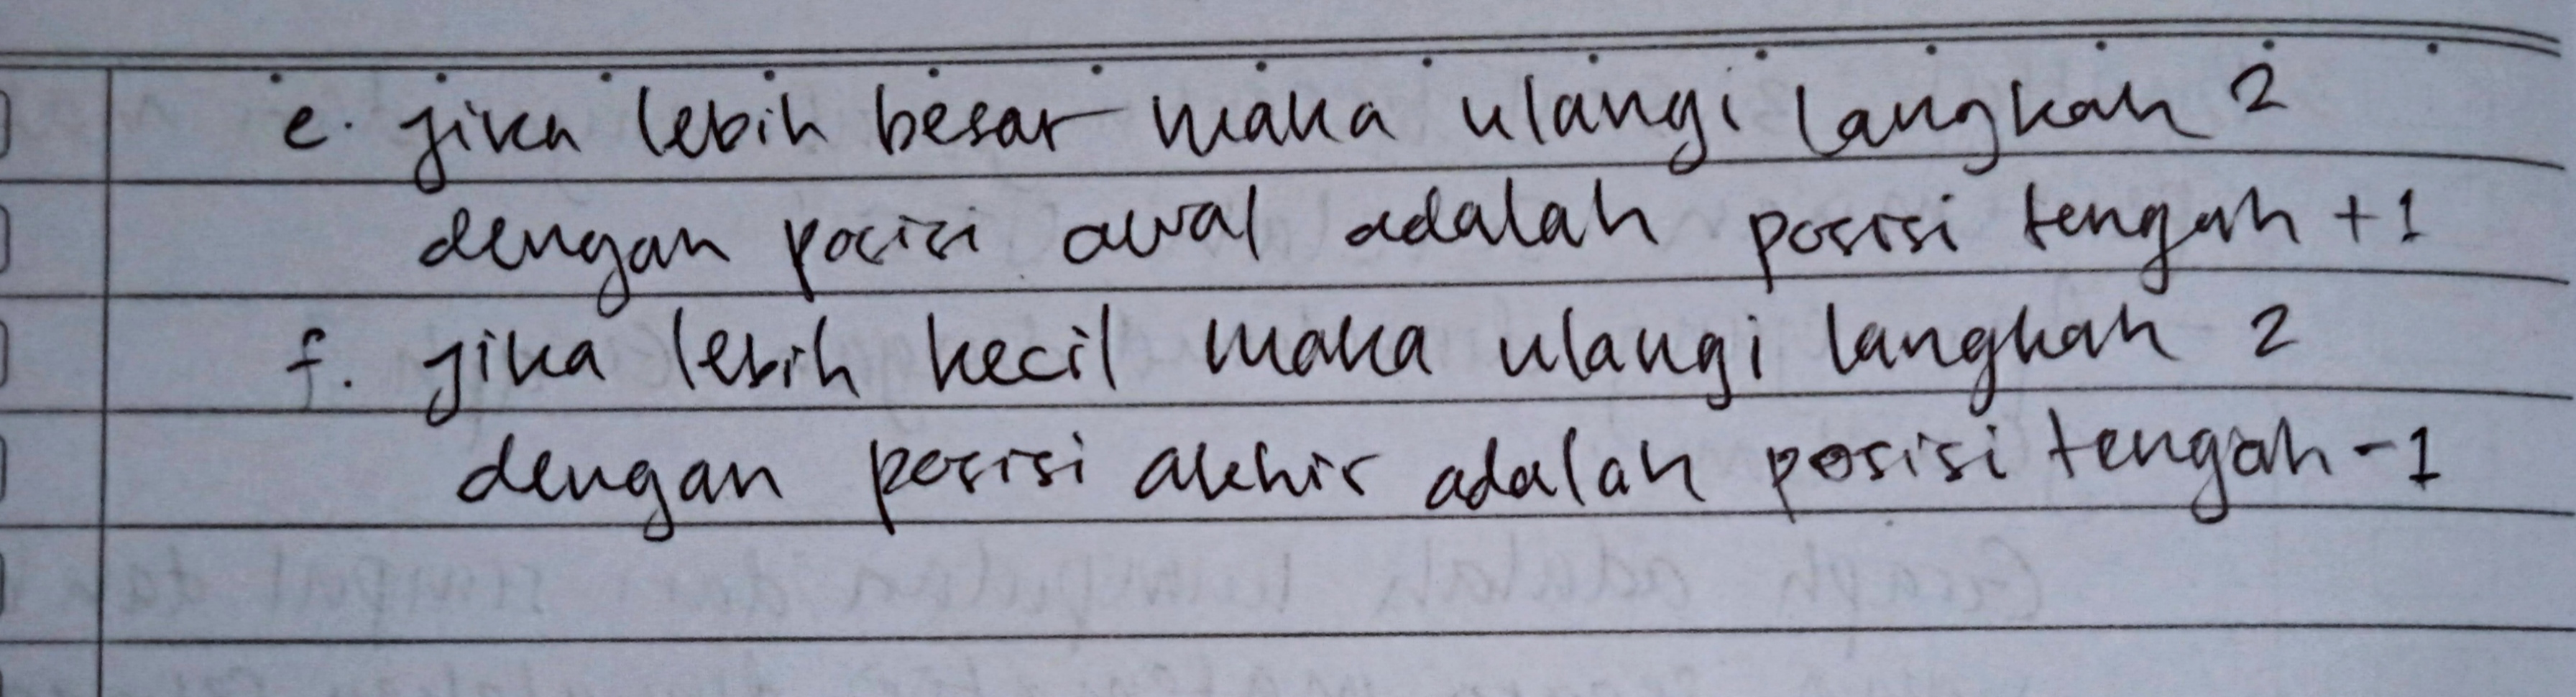 e. jika lebih besar maka ulangi langkah 2
dengan posisi awal adalah posisi tengah +1
f. jika lebih kecil maka ulangi langkah 2
dengan posisi akhir adalah posisi tengah -1